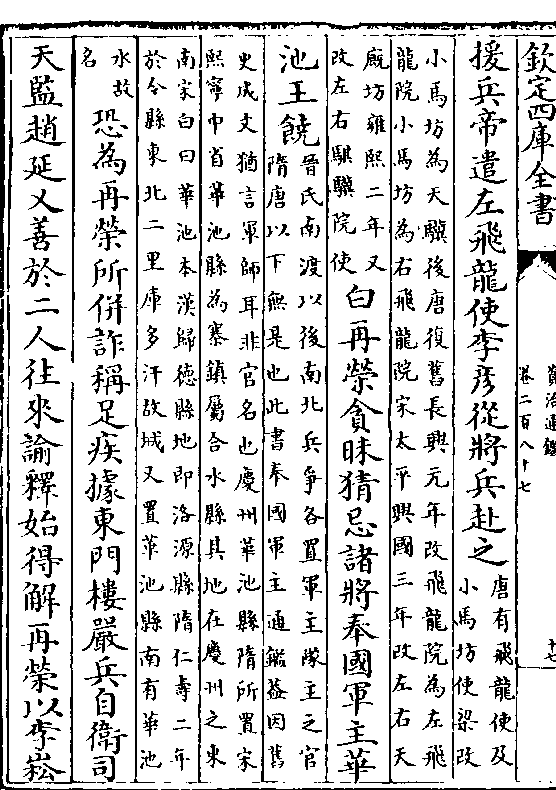 欽定四庫全書
資治通鑑
卷二百八十七
十七
援兵帝遣左飛龍使李彦從將兵赴之
唐有飛龍使及
小馬坊使梁改
小馬坊為天驥後唐復舊長興元年改飛龍院為左飛
龍院小馬坊為右飛龍院宋太平興國三年改左右天
廐坊雍熙二年又
改左右騏驥院使
白再榮貪昧猜忌諸將奉國軍主華
池王饒
晉氏南渡以後南北兵爭各置軍主隊主之官
隋唐以下無是也此書奉國軍主通鑑葢因舊
史成文猶言軍師耳非官名也慶州華池縣隋所置宋
熙寧中省華池縣為寨鎮屬合水縣具地在慶州之東
南宋白曰華池本漢歸德縣地即洛源縣隋仁壽二年
於今縣東北二里庫多汗故城又置華池縣南有華池
水故
名
恐為再榮所併詐稱足疾據東門樓嚴兵自衛司
天監趙延乂善於二人往來諭釋始得解再榮以李崧